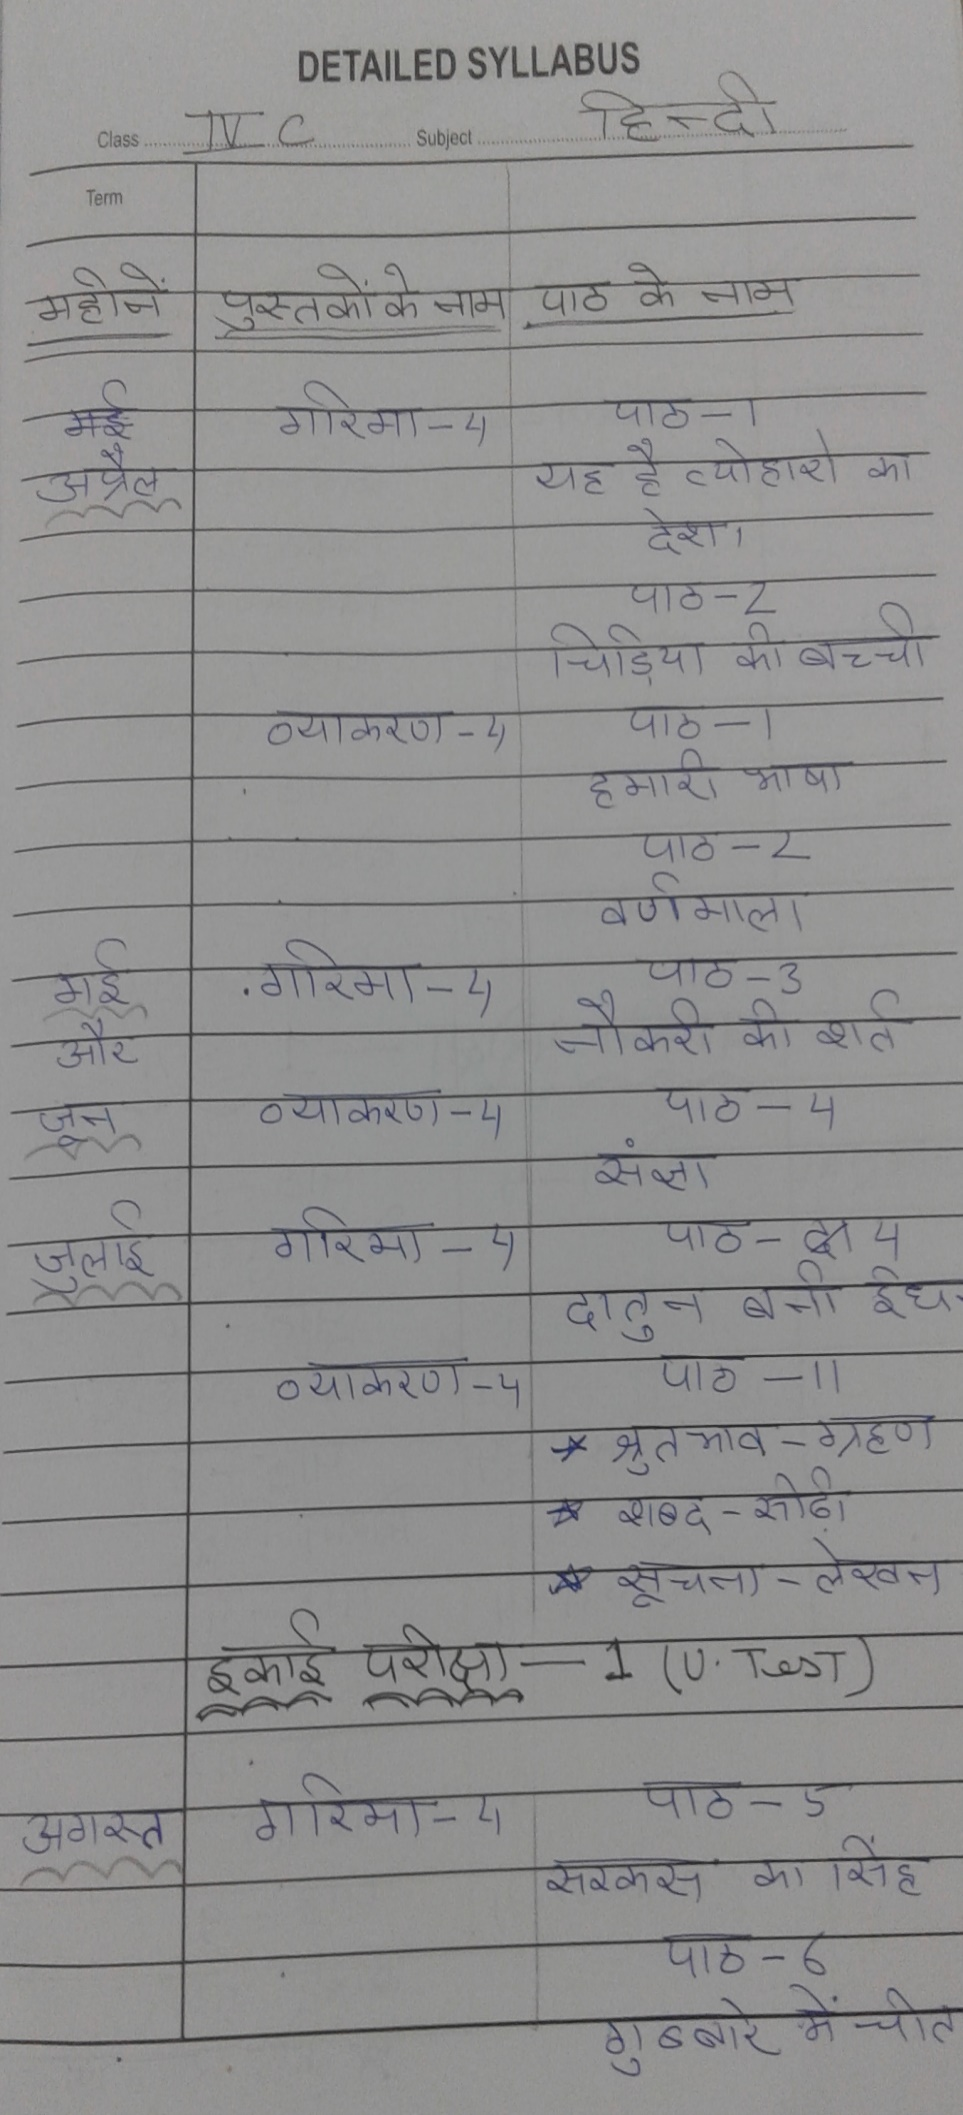 DETAILED SYLLABUS
Class IV C Subject हिन्दी
Term
महीनें पुस्तकों के नाम पाठ के नाम
मई गरिमा - 4 पाठ - 1
अप्रैल यह है त्योहारो का
देश।
पाठ - 2
चिड़िया की बच्ची
व्याकरण - 4 पाठ - 1
हमारी भाषा
पाठ - 2
वर्णमाला
मई गरिमा - 4 पाठ - 3
और नौकरी की शर्त
जून व्याकरण - 4 पाठ - 4
संज्ञा
जुलाई गरिमा - 4 पाठ - 4
दातुन बनी
व्याकरण - 4 पाठ - 11
* श्रुतभाव - ग्रहण
* शब्द - सीढ़ी
* सूचना - लेखन
इकाई परीक्षा - 1 (U. TesT)
अगस्त गरिमा - 4 पाठ - 5
सरकस का सिंह
पाठ - 6
गुब्बारे में